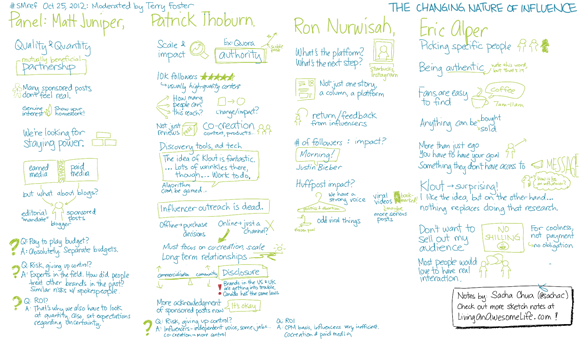 #SMref Oct 25, 2012: Moderated by Terry Foster
THE CHANGING NATURE OF INFLUENCE
Panel: Matt Juniper,
Quality & Quantity
mutually beneficial
partnership
Many sponsored posts
don't feel real.
Genuine
interest
Show your
homework!
We're looking for
staying power.
earned
media
paid
media
but what about blogs?
editorial
"mandate"
blogger
sponsored
posts
Q: Pay to play budget?
A: Absolutely. Separate budgets.
Q: Risk, giving up control?
A: Experts in the field. How did people
treat other brands in the past?
Similar risks w/ spokespeople.
Q: ROI?
A: That's why we also have to look
at quantity. Also, set expectations
regarding uncertainty.
Patrick Thoburn,
Scale &
impact
ex Quora
authority
10K followers
↳ usually high-quality content
How many
people can
this reach?
change/impact?
Not just
co-creation
content, products
Discovery tools, ad tech
The idea of Klout is fantastic,
... Lots of wrinkles there,
though... Work to do.
Algorithm
can be gamed...
Influencer outreach is dead.
Offline → purchase
decisions
Online → just a
channel?
Must focus on co-creation, scale
Long term relationships
commercialization
community
Disclosure
Brands in the US & UK
are getting into trouble.
Canada: half the same laws
More acknowledgment
of sponsored posts now
It's okay
Q: Risk, giving up control?
A: Influencers - independent voice, some jobs -
co-creation → more control
Ron Nurwisah,
What's the platform?
What's the next step?
Facebook,
Instagram
Not just one story,
a column, a platform
return/feedback
from influencers
# of followers : impact?
Morning!
Justin Bieber
Huffpost impact?
we have a
strong voice
odd viral things
viral
videos
more serious
posts
Q: ROI
Eric Alper
Picking specific people
Being authentic
Fans are easy
to find
Coffee
Time-Claire
Anything can be
bought
sold
More than just ego
You have to have your goal
Something they don't have access to
MESSAGE
Klout → surprising!
I like the idea, but on the other hand...
nothing replaces doing that research.
Don't want to
sell out my
audience.
NO
SHILLING
For coolness,
not payment
no obligation
Most people would
love to have real
interaction.
Notes by Sacha Chua (@sachac)
Check out more sketch notes at
LivingAnAwesomeLife.com !